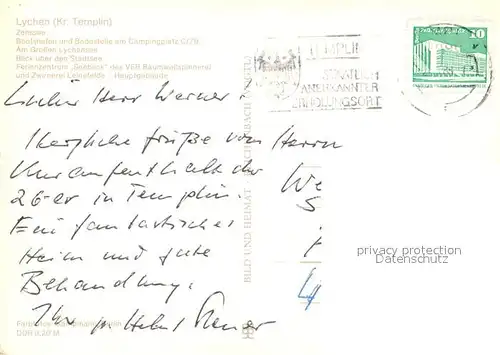 Lychen (Kr. Templin)
Zenssee
Bootshafen und Badestelle am Campingplatz C/78
Am Großen Lychensee
Blick über den Stadtsee
Ferienzentrum des VEB Baumwollspinnerei
und Zwirnerei Leinefelde - Hauptgebäude
TEMPLIN
STAATLICH
ANERKANNTER
ERHOLUNGSORT
10
Lieber Herr Werner!
Herzliche Grüße vom Herrn
Kuraufenthalt der
26-er in Templin.
Ein fantastisches
Heim und gute
Behandlung.
Ihr
BILD UND HEIMAT REICHENBACH
We
S
privacy protection
Datenschutz
DDR 0,20 M